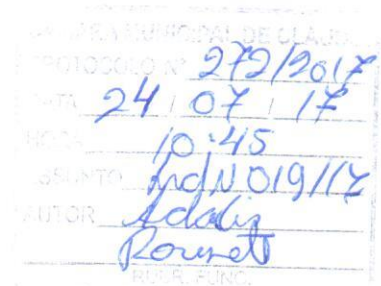 CÂMARA MUNICIPAL DE CLÁUDIO
PROTOCOLO Nº 272/2017
DATA 24 / 07 / 17
HORA 10:45
ASSUNTO Ind Nº 019/17
AUTOR
RUBR. FUNC.